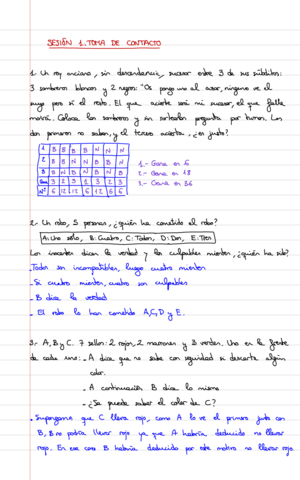 SESIÓN 1. TOMA DE CONTACTO
1.- Un rey anciano, sin descendencia, sucesor entre 3 de sus súbditos:
3 sombreros blancos y 2 negros: "Os pongo uno al azar, ninguno ve el
suyo pero sí el resto. El que acierte será mi sucesor, el que falle
morirá. Coloca los sombreros y sin sortearlos pregunta por turnos. Los
dos primeros no saben, y el tercero acierta. ¿es justo?
1 B B B B N N N
2 B B N N B B N
3 B N B N B N B
Gana 3 2 3 1 3 2 3
Nº 6 12 12 6 12 6 6
1.- Gana en 6
2.- Gana en 18
3.- Gana en 36
2.- Un robo, 5 personas, ¿quién ha cometido el robo?
A: Uno sólo, B: Cuatro, C: Todos, D: Dos, E: Tres
Los inocentes dicen la verdad y los culpables mienten, ¿quién ha sido?
- Todas son incompatibles, luego cuatro mienten
- Si cuatro mienten, cuatro son culpables
- B dice la verdad
- El robo lo han cometido A, C, D y E.
3.- A, B y C. 7 sellos: 2 rojos, 2 marrones y 3 verdes. Uno en la frente
de cada uno: - A dice que no sabe con seguridad si descarta algún
color.
- A continuación B dice lo mismo
- ¿Se puede saber el color de C?
- Supongamos que C lleva rojo, como A lo ve el primero junto con
B, B no podría llevar rojo ya que A habría deducido no llevar
rojo. En ese caso B habría deducido por este motivo no llevar rojo.